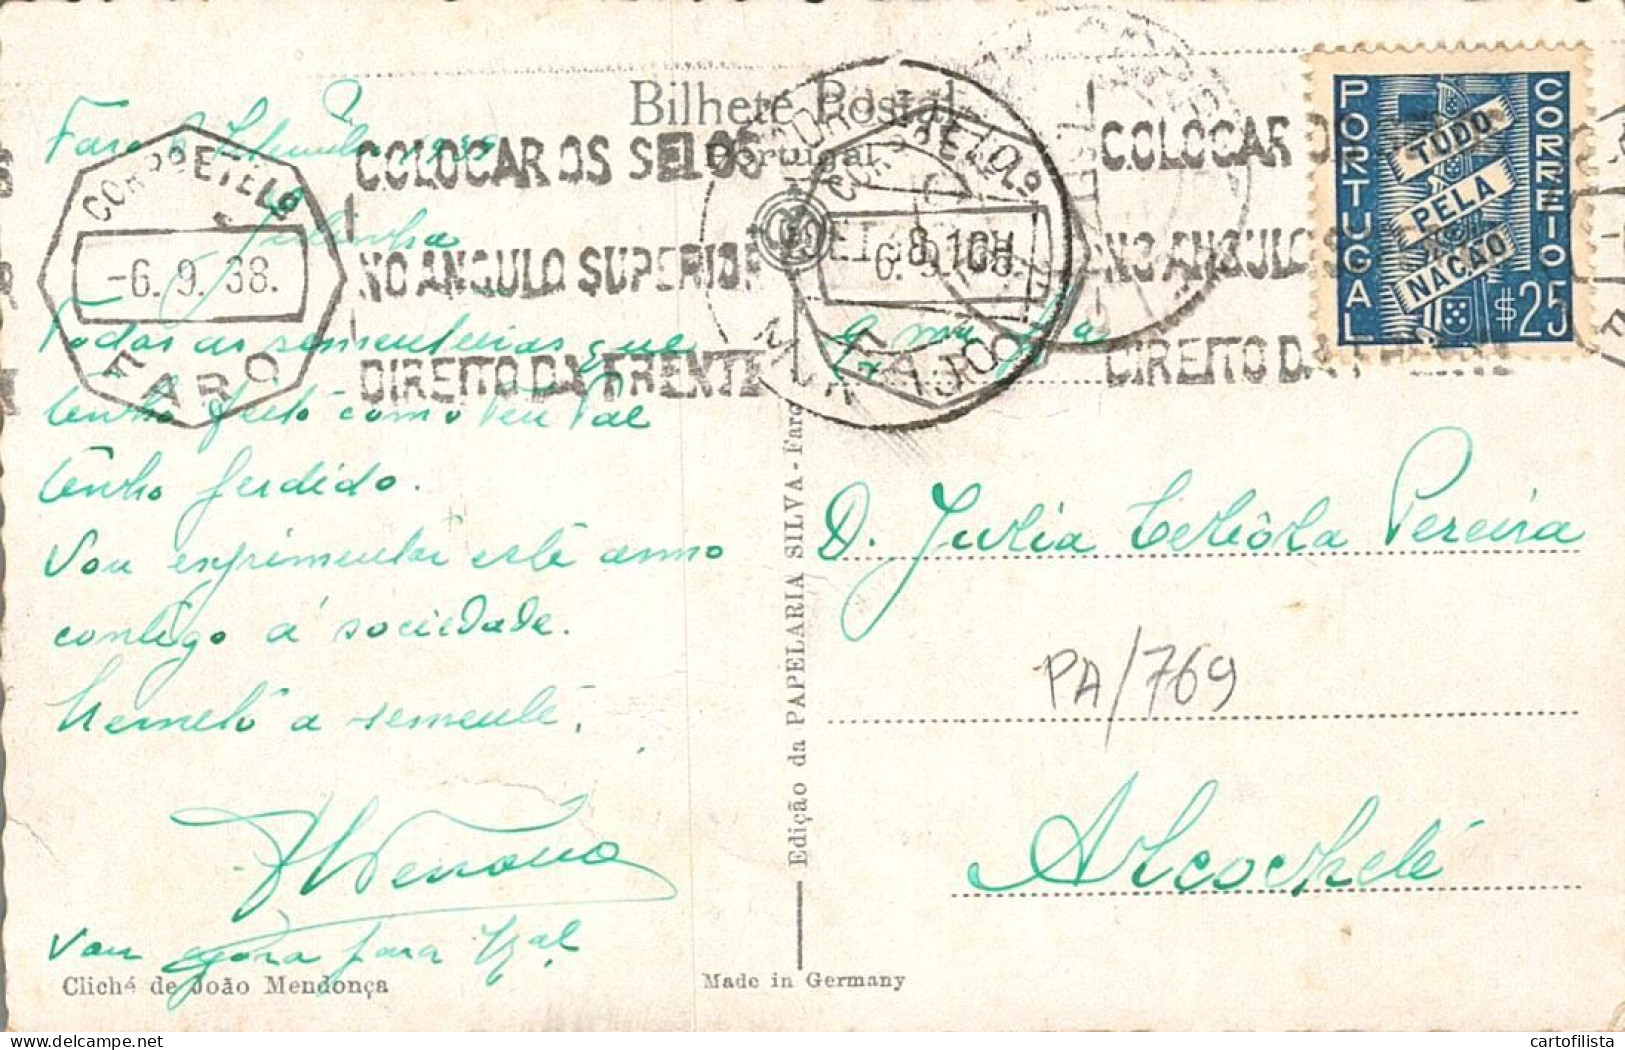 Bilhete Postal
Portugal
CORRO E TELO
-6. 9. 38.
FARO
COLOCAR OS SELOS
NO ANGULO SUPERIOR
DIREITO DA FRENTE
CORRO E TELO
6. 9. 38.
FARO
COLOCAR OS
NO ANGULO S
DIREITO DA FRENTE
PORTUGAL
CORREIO
TUDO
PELA
NAÇÃO
$25
Faro
Julinha
Todas as sementeiras que
tenho feito como Teu Pai
tenho perdido.
Vou exprimentar este anno
contigo á sociedade.
Remeto a semente.
Vou agora para
D. Julia Pereira
PA/769
Alcochete
Edição da PAPELARIA SILVA - Faro
Cliché de João Mendonça
Made in Germany
cartofilista